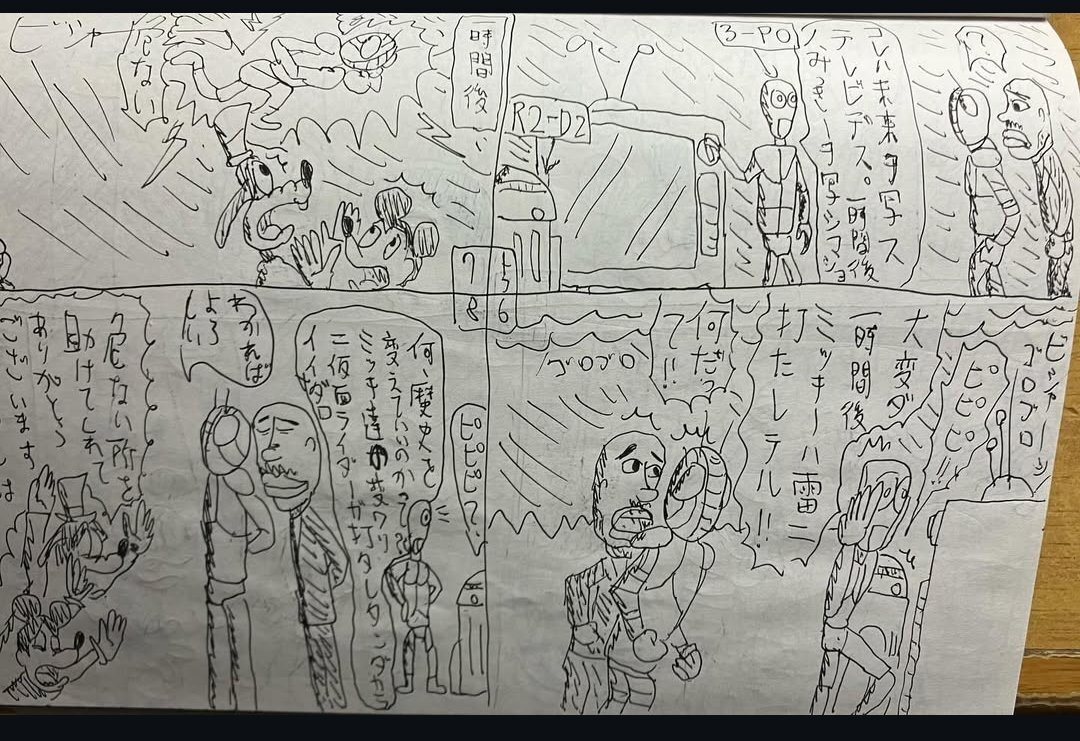 3-PO
コレハ未来ヲ写ス
テレビデス。一時間後
ノみっきーヲ写シマショ
R2-D2
一時間後
危ない
ビシャー
ト5
6
7
8
ビシャーン
ゴロゴロ
ピピピピ!!
大変ダ
一時間後
ミッキーハ雷ニ
打たレテル!!
何だっ
て!!
ゴロゴロ
ピピピ?
何、歴史を
変えていいのかって?
ミッキー達の変ワリ
二仮面ライダーガ打タレタンダカラ
イイサ
わかれば
よろ
しい
危ない所を
助けてくれて
ありがとう
ございます